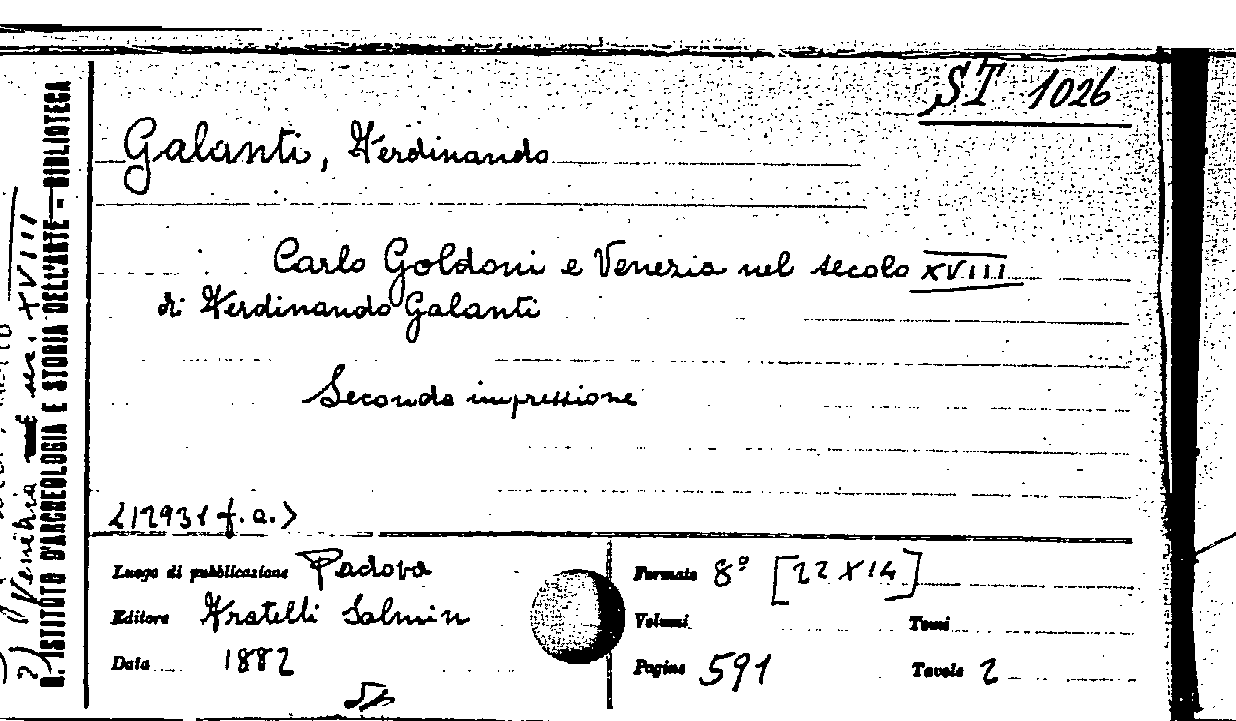 ST 1026
Galanti, Ferdinando
Carlo Goldoni e Venezia nel secolo XVIII
di Ferdinando Galanti
Seconda impressione
<12931 f.a.>
Luogo di pubblicazione Padova
Editore Fratelli Salmin
Data 1882
Formato 8° [22 x 14]
Volumi Tomi
Pagine 591 Tavole 2
R. ISTITUTO D'ARCHEOLOGIA E STORIA DELL'ARTE - BIBLIOTECA
2) Venezia sec. XVIII